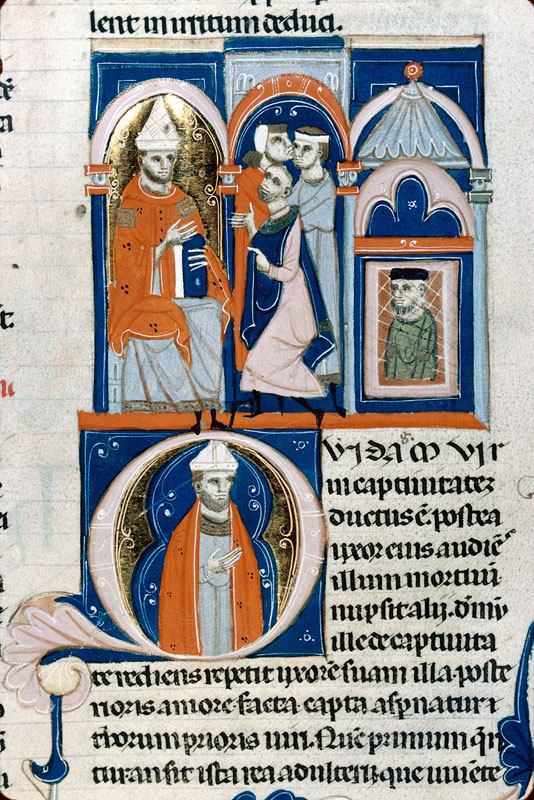 lent inuitum deduci.
VIDAM VIR
in captiuitatez
ductus ē. postea
uxor eius audiēs
illum mortuū
nupsit alij. dm̄ū
ille de captiuita
te rediens repetit uxorē suam illa poste
rioris amore facta capta aspnatur
thorum prioris uiri. Nūc primum qr̄i
tur an sit ista rea adulterij que uiuēte